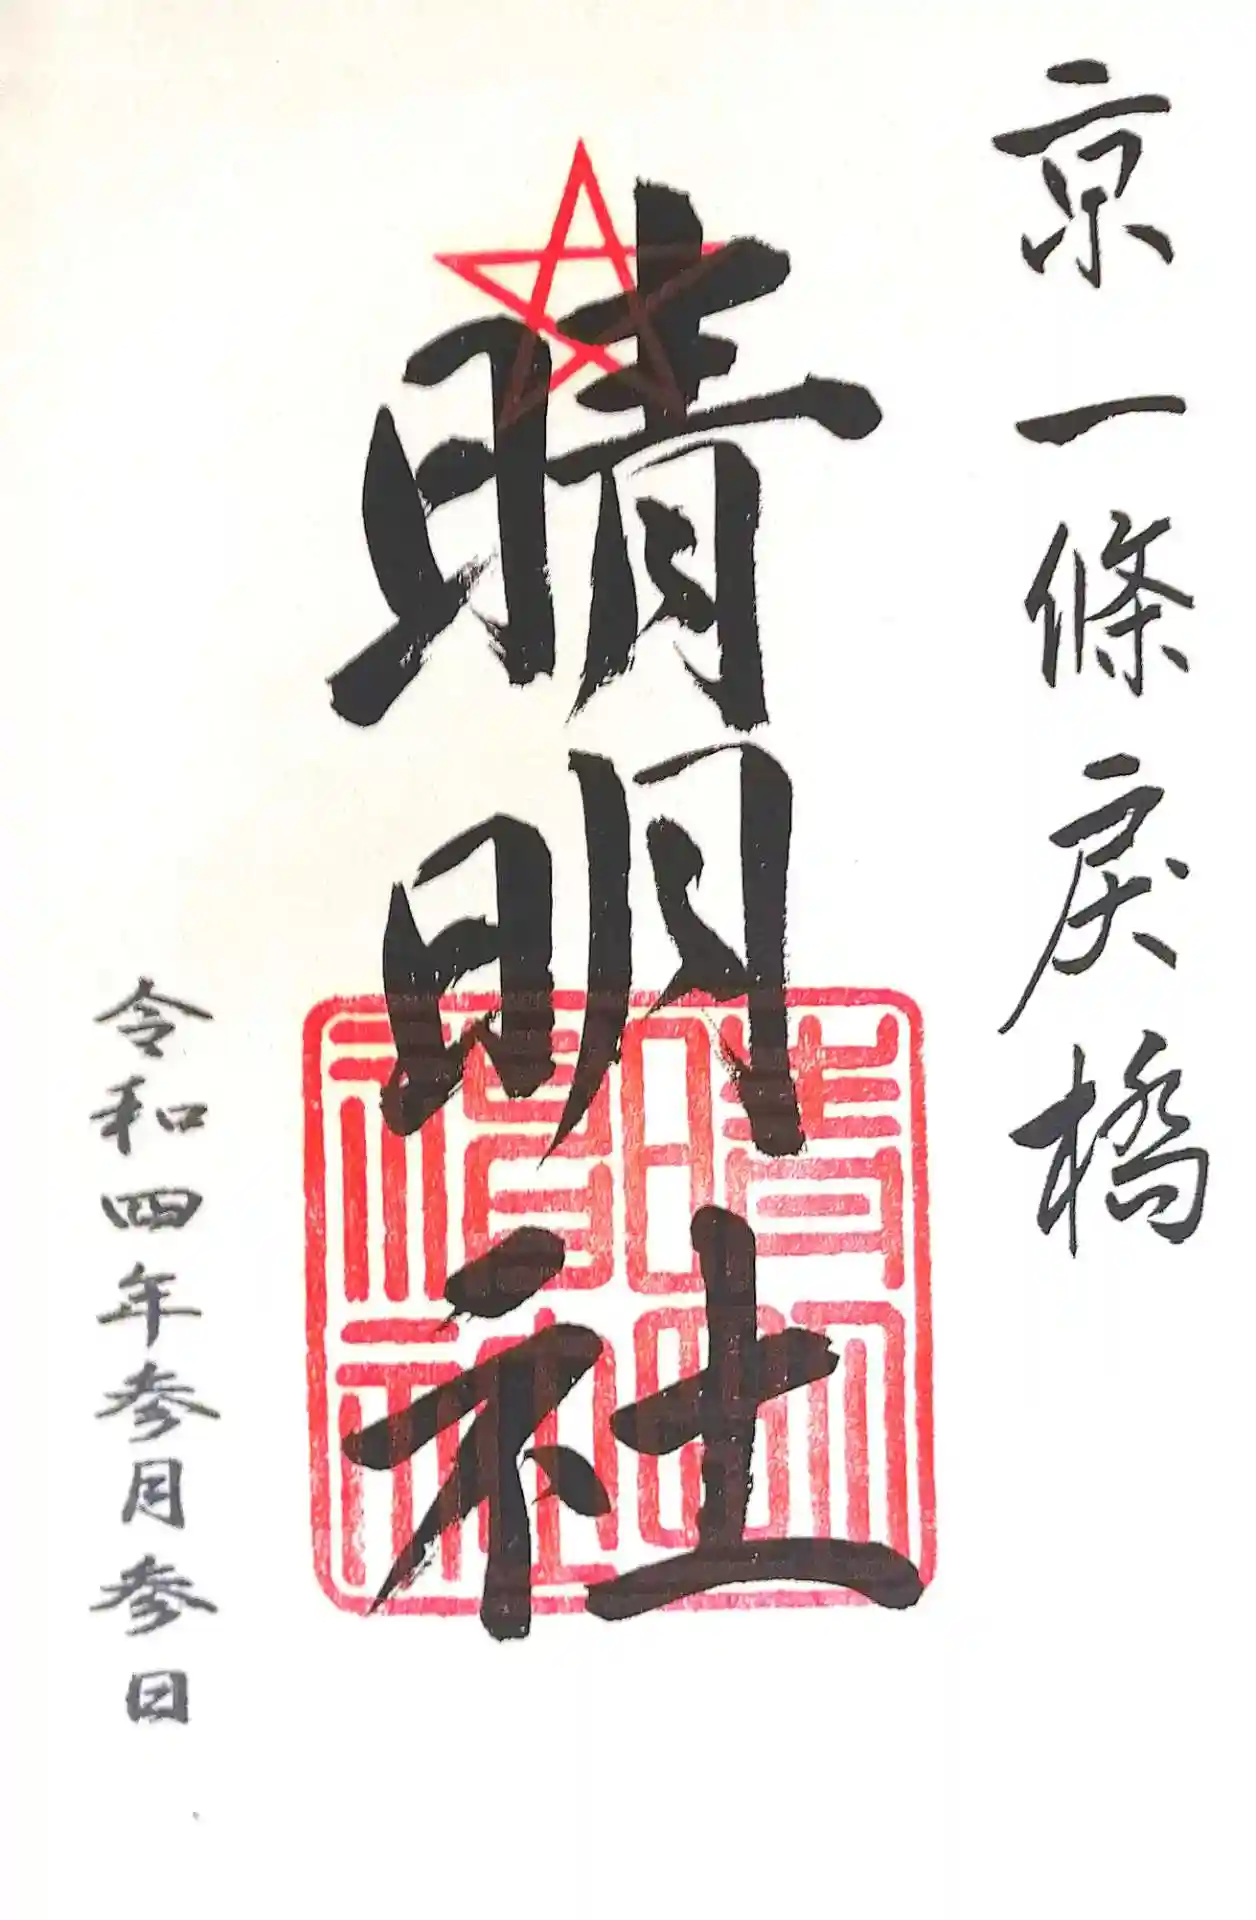 京一條戻橋
晴明社
晴明神社
令和四年参月参日